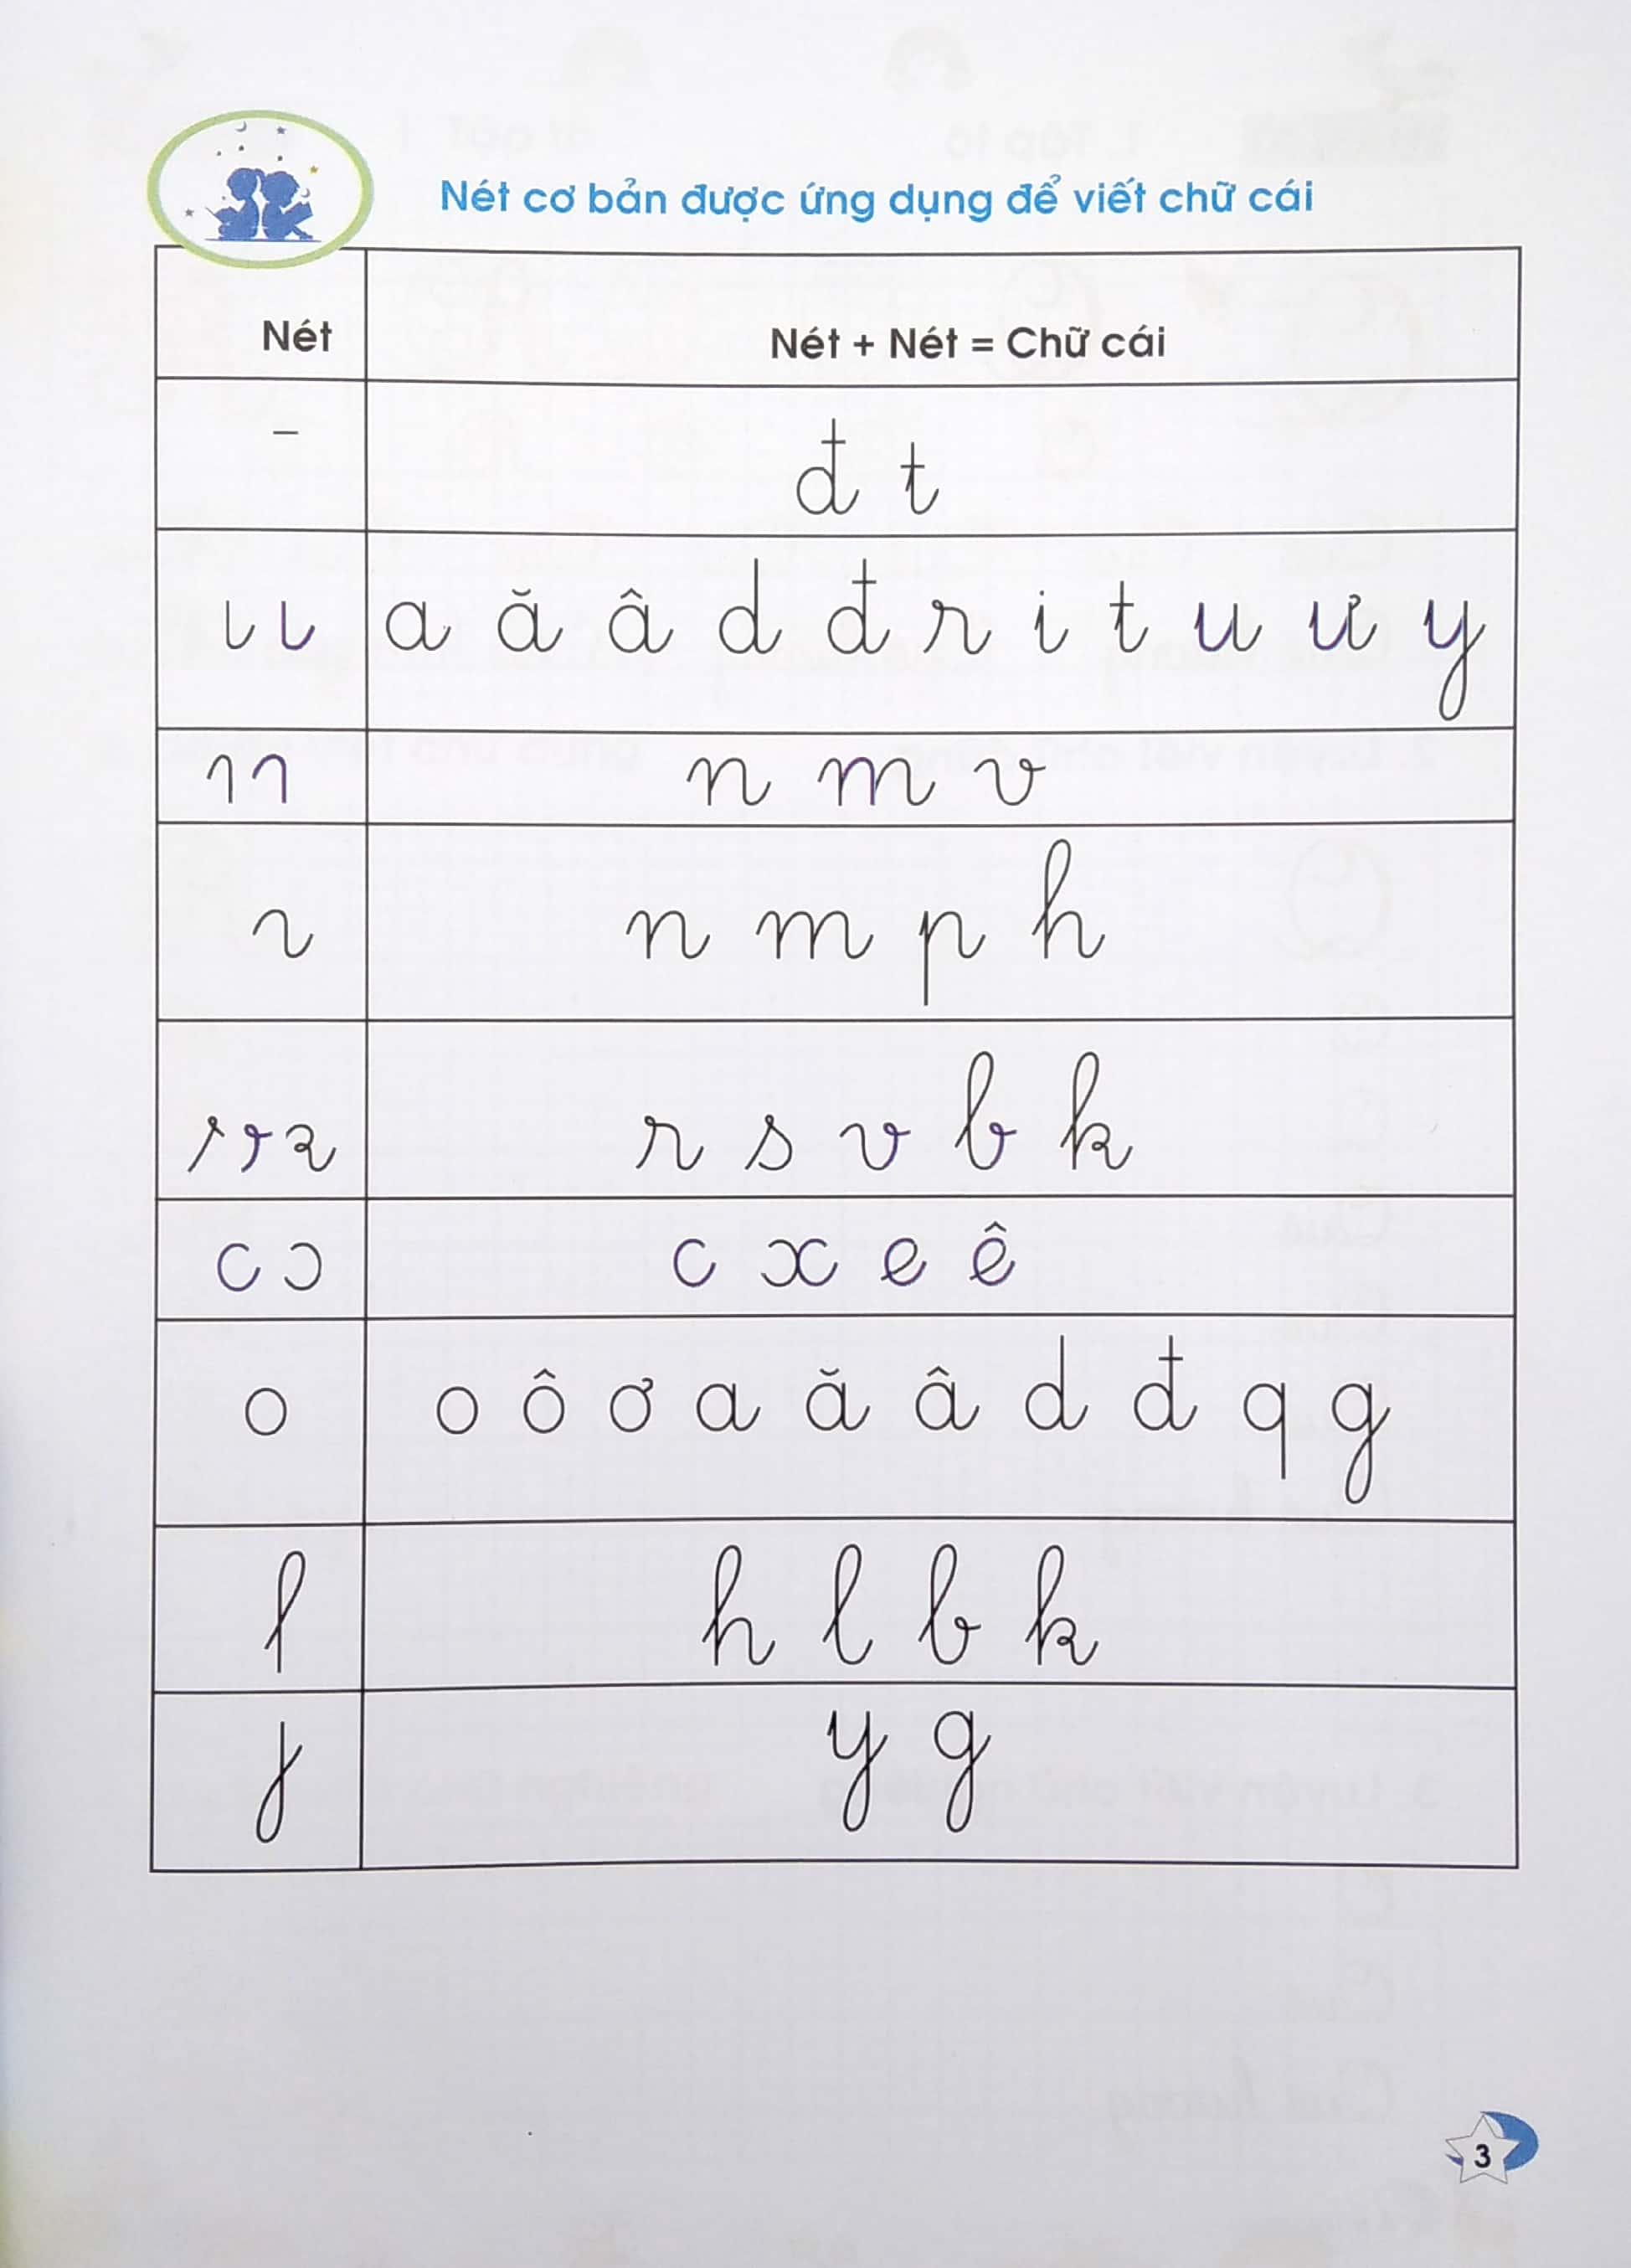 Nét cơ bản được ứng dụng để viết chữ cái
Nét
Nét + Nét = Chữ cái
đ t
a ă â d đ r i t u ư y
n m v
n m p h
r s v b k
c x e ê
o o ô ơ a ă â d đ q g
h l b k
y g
3